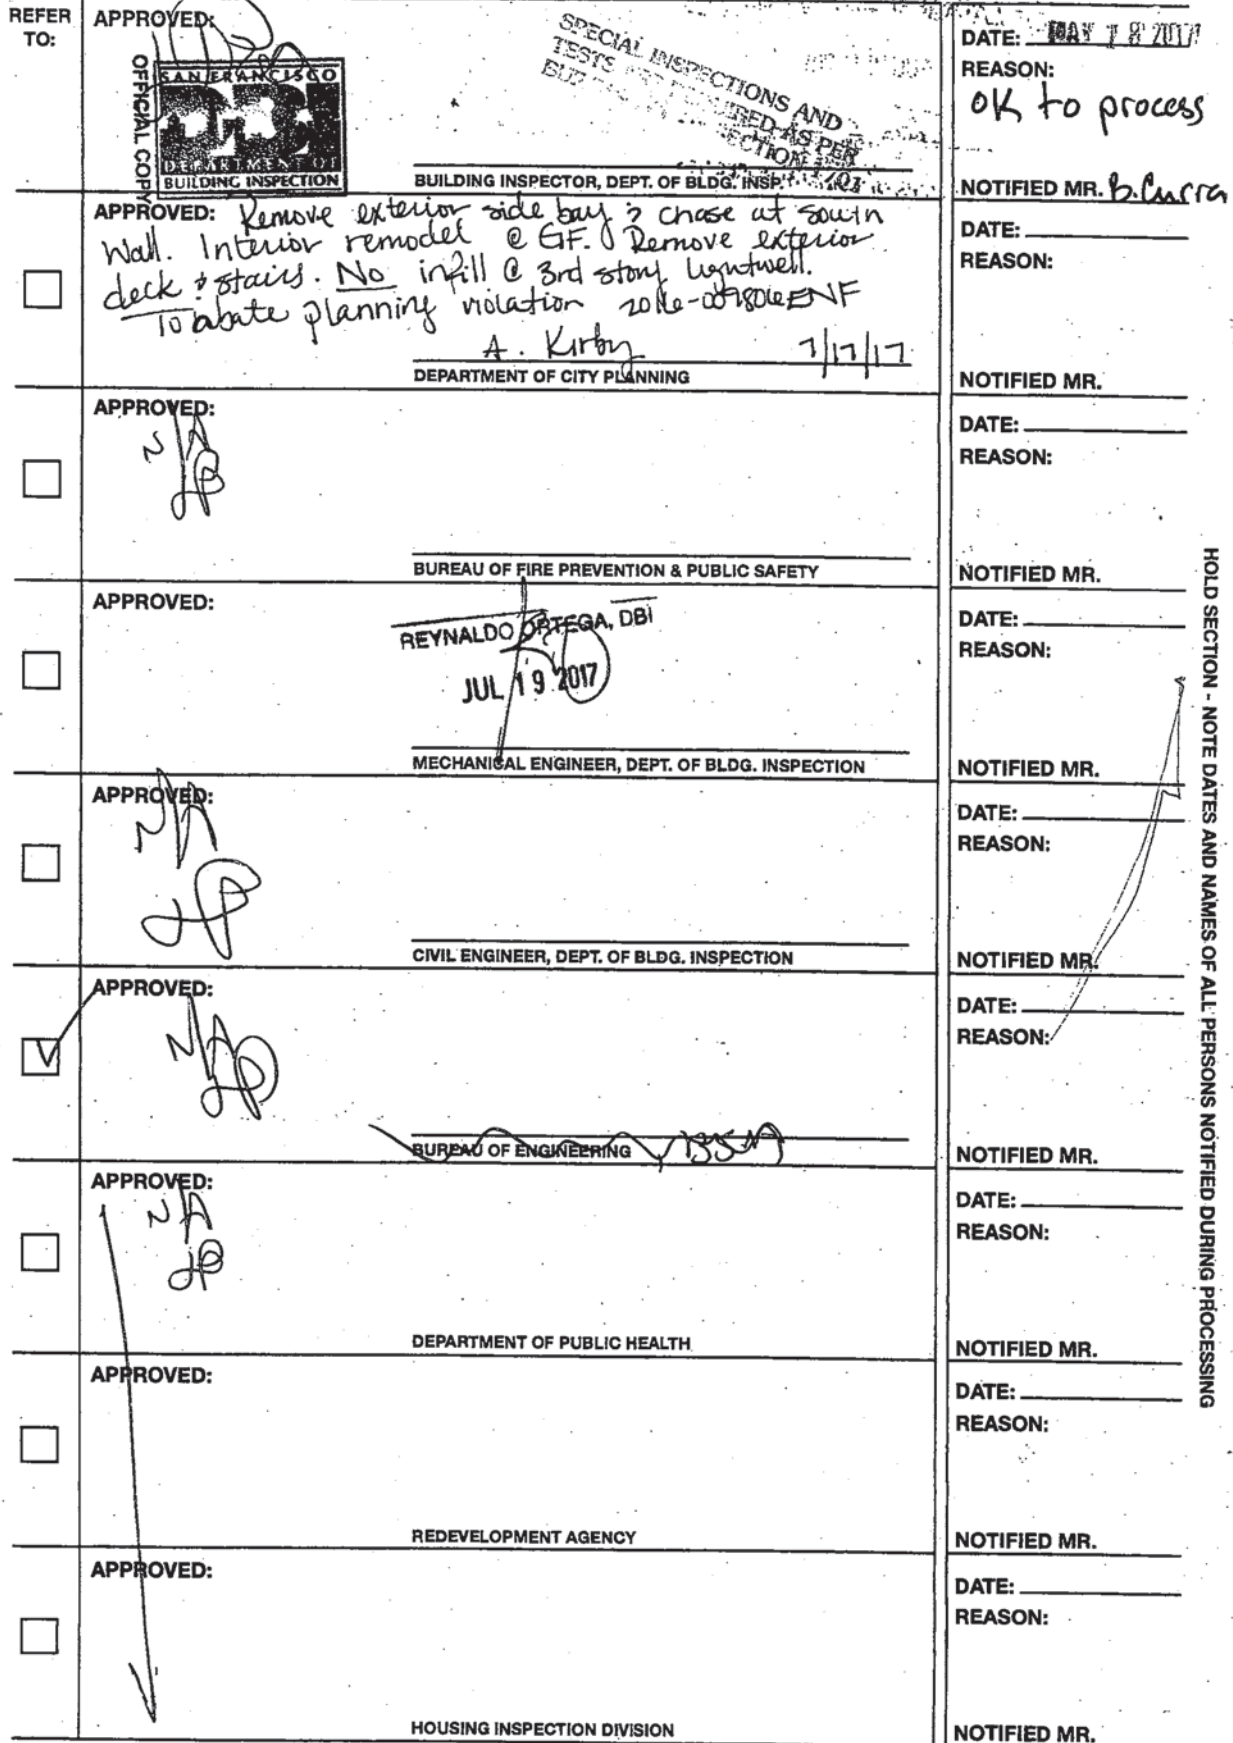 REFER
TO:
APPROVED:
OFFICIAL COPY
SAN FRANCISCO
DBI
DEPARTMENT OF
BUILDING INSPECTION
SPECIAL INSPECTIONS AND
TESTS ARE REQUIRED AS PER
SECTION 1701
BUILDING INSPECTOR, DEPT. OF BLDG. INSP.
DATE: MAY 18 2017
REASON:
OK to process
NOTIFIED MR. B. Curra
APPROVED: Remove exterior side bay & chase at south
Wall. Interior remodel @ GF. Remove exterior
deck & stairs. No infill @ 3rd story lightwell.
To abate planning violation
A. Kirby 7/17/17
DEPARTMENT OF CITY PLANNING
DATE:
REASON:
NOTIFIED MR.
APPROVED:
N/A
BUREAU OF FIRE PREVENTION & PUBLIC SAFETY
DATE:
REASON:
NOTIFIED MR.
APPROVED:
REYNALDO ORTEGA, DBI
JUL 19 2017
MECHANICAL ENGINEER, DEPT. OF BLDG. INSPECTION
DATE:
REASON:
NOTIFIED MR.
APPROVED:
N/A
CIVIL ENGINEER, DEPT. OF BLDG. INSPECTION
DATE:
REASON:
NOTIFIED MR.
APPROVED:
N/A
BUREAU OF ENGINEERING
DATE:
REASON:
NOTIFIED MR.
APPROVED:
N/A
DEPARTMENT OF PUBLIC HEALTH
DATE:
REASON:
NOTIFIED MR.
APPROVED:
REDEVELOPMENT AGENCY
DATE:
REASON:
NOTIFIED MR.
APPROVED:
HOUSING INSPECTION DIVISION
DATE:
REASON:
NOTIFIED MR.
HOLD SECTION - NOTE DATES AND NAMES OF ALL PERSONS NOTIFIED DURING PROCESSING